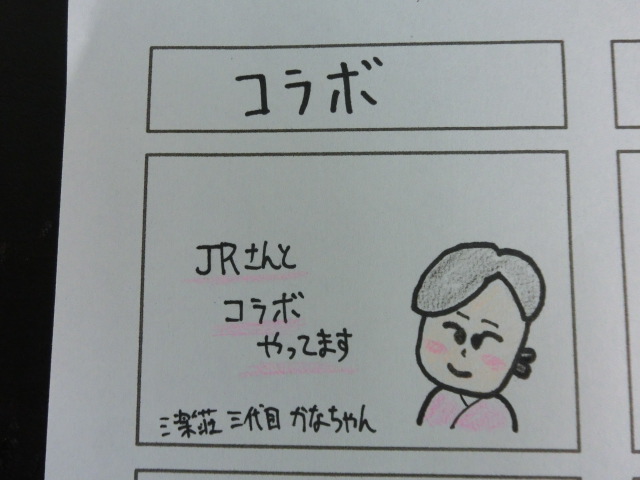 コラボ
JRさんと
コラボ
やってます
三楽荘 三代目 かなちゃん